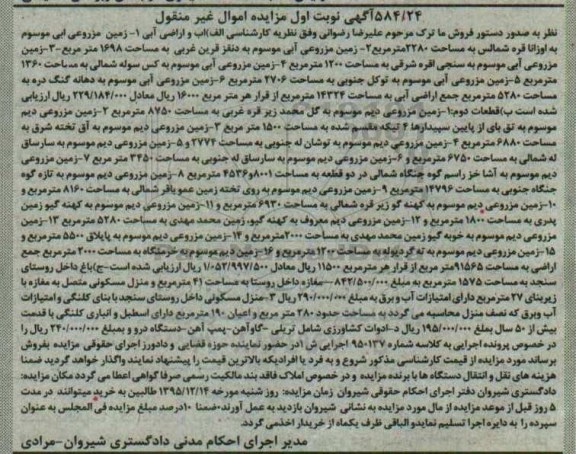 ۵۸۴/۲۴آگهی نوبت اول مزایده اموال غیر منقول
نظر به صدور دستور فروش ما ترک مرحوم علیرضا رضوانی وفق نظریه کارشناسی الف)اب و اراضی آبی ۱- زمین مزروعی ابی موسوم
به اوزانا قره شمالس به مساحت ۲۲۸۰مترمربع۲- زمین مزروعی آبی موسوم به دنقز قرین غربی به مساحت ۱۶۹۸ متر مربع-۳-زمین
مزروعی آبی موسوم به سنجی اقره شرقی به مساحت ۱۲۰۰ مترمربع ۴-زمین مزروعی آبی موسوم به کس سوله شمالی به مساحت ۱۳۶۰
مترمربع ۵-زمین مزروعی آبی موسوم به توکل جنوبی به مساحت ۲۷۰۶ مترمربع ۶-زمین مزروعی آبی موسوم به دهانه گنگ دره به
مساحت ۵۲۸۰ مترمربع جمع اراضی آبی به مساحت ۱۴۳۲۴ مترمربع از قرار هر متر مربع ۱۶۰۰۰ ریال معادل ۲۲۹/۱۸۴/۰۰۰ ریال ارزیابی
شده است ب)قطعات دوم:۱-زمین مزروعی دیم موسوم به گل محمد زیر قره غربی به مساحت ۸۷۵۰ مترمربع ۲-زمین مزروعی دیم
موسوم به تق بای از پایین سپیدارها ۴ تیکه مقسم شده به مساحت ۱۵۰۰ متر مربع ۳-زمین مزروعی دیم موسوم به آق تخته شرق به
مساحت ۶۸۸۰ مترمربع ۴-زمین مزروعی دیم موسوم به توشان له جنوبی به مساحت ۲۷۷۴ و ۵-زمین مزروعی دیم موسوم به سارساق
له شمالی به مساحت ۶۷۵۰ مترمربع و ۶-زمین مزروعی دیم موسوم به سارساق له جنوبی به مساحت ۳۴۵۰ متر مربع ۷-زمین مزروعی
دیم موسوم به آشا خز راسم گوه جنگاه شمالی در دو قطعه به مساحت ۸۰۰۱و۴۵۳۶ مترمربع ۸-زمین مزروعی دیم موسوم به تازه گوه
جنگاه جنوبی به مساحت ۱۴۷۹۶ مترمربع ۹-زمین مزروعی دیم موسوم به روی تخته زمین عمو باقر شمالی به مساحت ۸۱۶۰ مترمربع و
۱۰-زمین مزروعی دیم موسوم به کهنه گو زیر قره شمالی به مساحت ۶۹۳۰ مترمربع و ۱۱-زمین مزروعی دیم موسوم به کهنه گیو زمین
پدری به مساحت ۱۸۰۰ مترمربع و ۱۲-زمین مزروعی دیم معروف به کهنه گیو، زمین محمد مهدی به مساحت ۵۲۸۰ مترمربع ۱۳-زمین
مزروعی دیم موسوم به خوبه گیو زمین محمد مهدی به مساحت ۲۰۰۰مترمربع و ۱۴-زمین مزروعی دیم موسوم به پاپلاق ۵۵۰۰ مترمربع و
۱۵-زمین مزروعی دیم موسوم به ته گردیوله به مساحت ۱۲۰۰مترمربع و ۱۶-زمین دیم موسوم به خرمنگاه به مساحت ۲۰۰۰ مترمربع جمع
اراضی به مساحت ۹۱۵۶۵متر مربع از قرار هر مترمربع ۱۱۵۰۰ ریال معادل ۱/۰۵۲/۹۹۷/۵۰۰ ریال ارزیابی شده است-ج)باغ داخل روستای
سنجد به مساحت ۱۵۷۵ مترمربع به مبلغ ۸۴۲/۵۰۰/۰۰۰ -مغازه داخل روستا به مساحت ۴۱ مترمربع و منزل مسکونی متصل به مغازه با
زیربنای ۲۷مترمربع دارای امتیازات آب و برق به مبلغ ۲۹۰/۰۰۰/۰۰۰ ریال ۳-منزل مسکونی داخل روستای سنجد با بنای کلنگی و امتیازات
آب وبرق که نصف منزل محاسبه می گردد به مساحت حدود ۲۸۰ متر مربع و اعیان ۱۹۰ مترمربع دارای اسطبل و انباری کلنگی با قدمت
بیش از ۵۰ سال بمبلغ ۱۹۵/۰۰۰/۰۰۰ ریال د-ادوات کشاورزی شامل تریلی -گاوآهن-پمپ آهن-دستگاه درو و بمبلغ ۲۴۰/۰۰۰/۰۰۰ ریال را
در خصوص پرونده اجرایی به کلاسه شماره ۹۵۰۱۳۷ اجرایی ش ۱در حضور نماینده حوزه قضایی و دادورز اجرای حقوقی مزایده بفروش
برساند مورد مزایده از قیمت کارشناسی مذکور شروع و به فرد یا افرادیکه بالاترین قیمت را پیشنهاد نمایند واگذار خواهد گردید ضمنا
هزینه های نقل و انتقال دستگاه ها با برنده مزایده و در خصوص املاک فاقد بند مالکیت رسمی صرفا گواهی اعطا می گردد مکان مزایده:
دادگستری شیروان دفتر اجرای احکام حقوقی شیروان زمان مزایده: روز شنبه مورخه ۱۳۹۵/۱۲/۱۴ طالبین به خرید میتوانند در مدت
۵ روز قبل از موعد مزایده از مال مورد مزایده به نشانی شیروان بازدید به عمل آورند-ضمنا ۱۰درصد مبلغ مزایده فی المجلس به عنوان
سپرده را به دایره اجرا تسلیم نمایدو الباقی ظرف یکماه از خریدار اخذمی گردد.
مدیر اجرای احکام مدنی دادگستری شیروان-مرادی